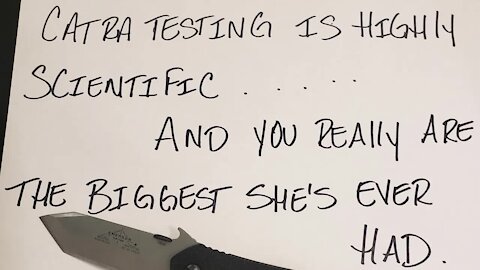 CATRA TESTING IS HIGHLY
SCIENTIFIC . . . . .
AND YOU REALLY ARE
THE BIGGEST SHE'S EVER
HAD.